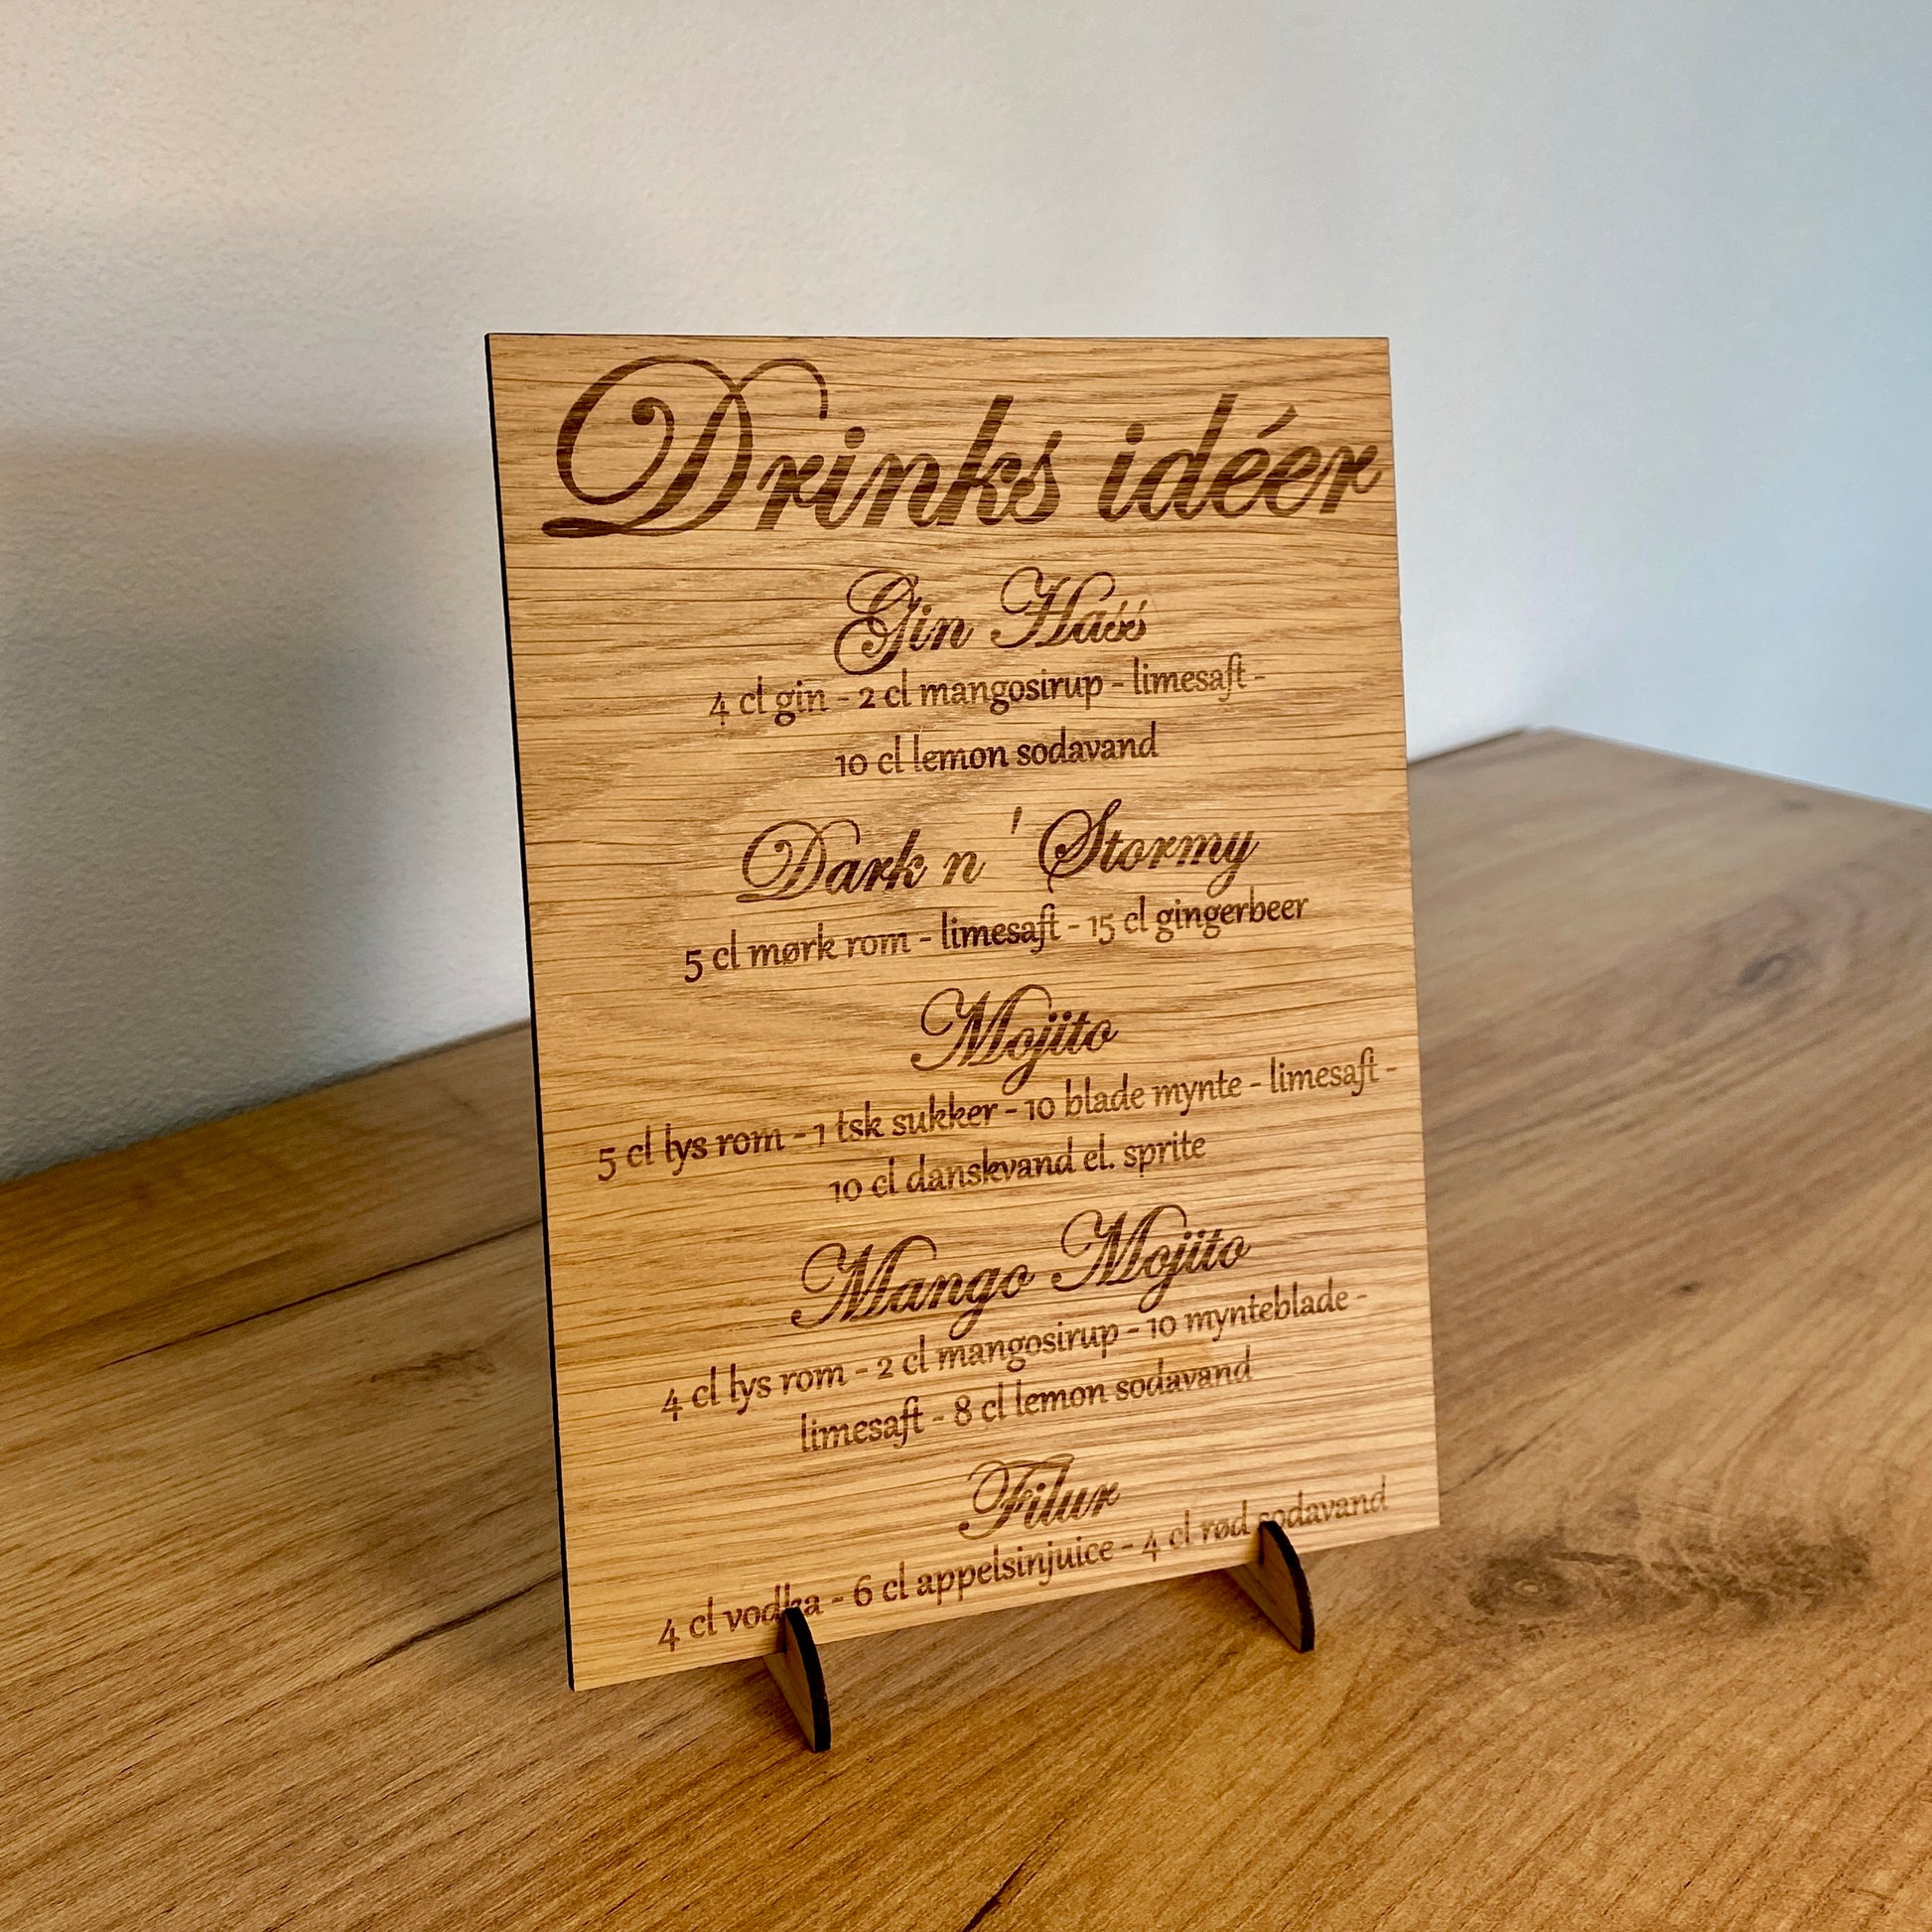 Drinks idéer
Gin Hass
4 cl gin - 2 cl mangosirup - limesaft -
10 cl lemon sodavand
Dark n ' Stormy
5 cl mørk rom - limesaft - 15 cl gingerbeer
Mojito
5 cl lys rom - 1 tsk sukker - 10 blade mynte - limesaft -
10 cl danskvand el. sprite
Mango Mojito
4 cl lys rom - 2 cl mangosirup - 10 mynteblade -
limesaft - 8 cl lemon sodavand
Filur
4 cl vodka - 6 cl appelsinjuice - 4 cl rød sodavand